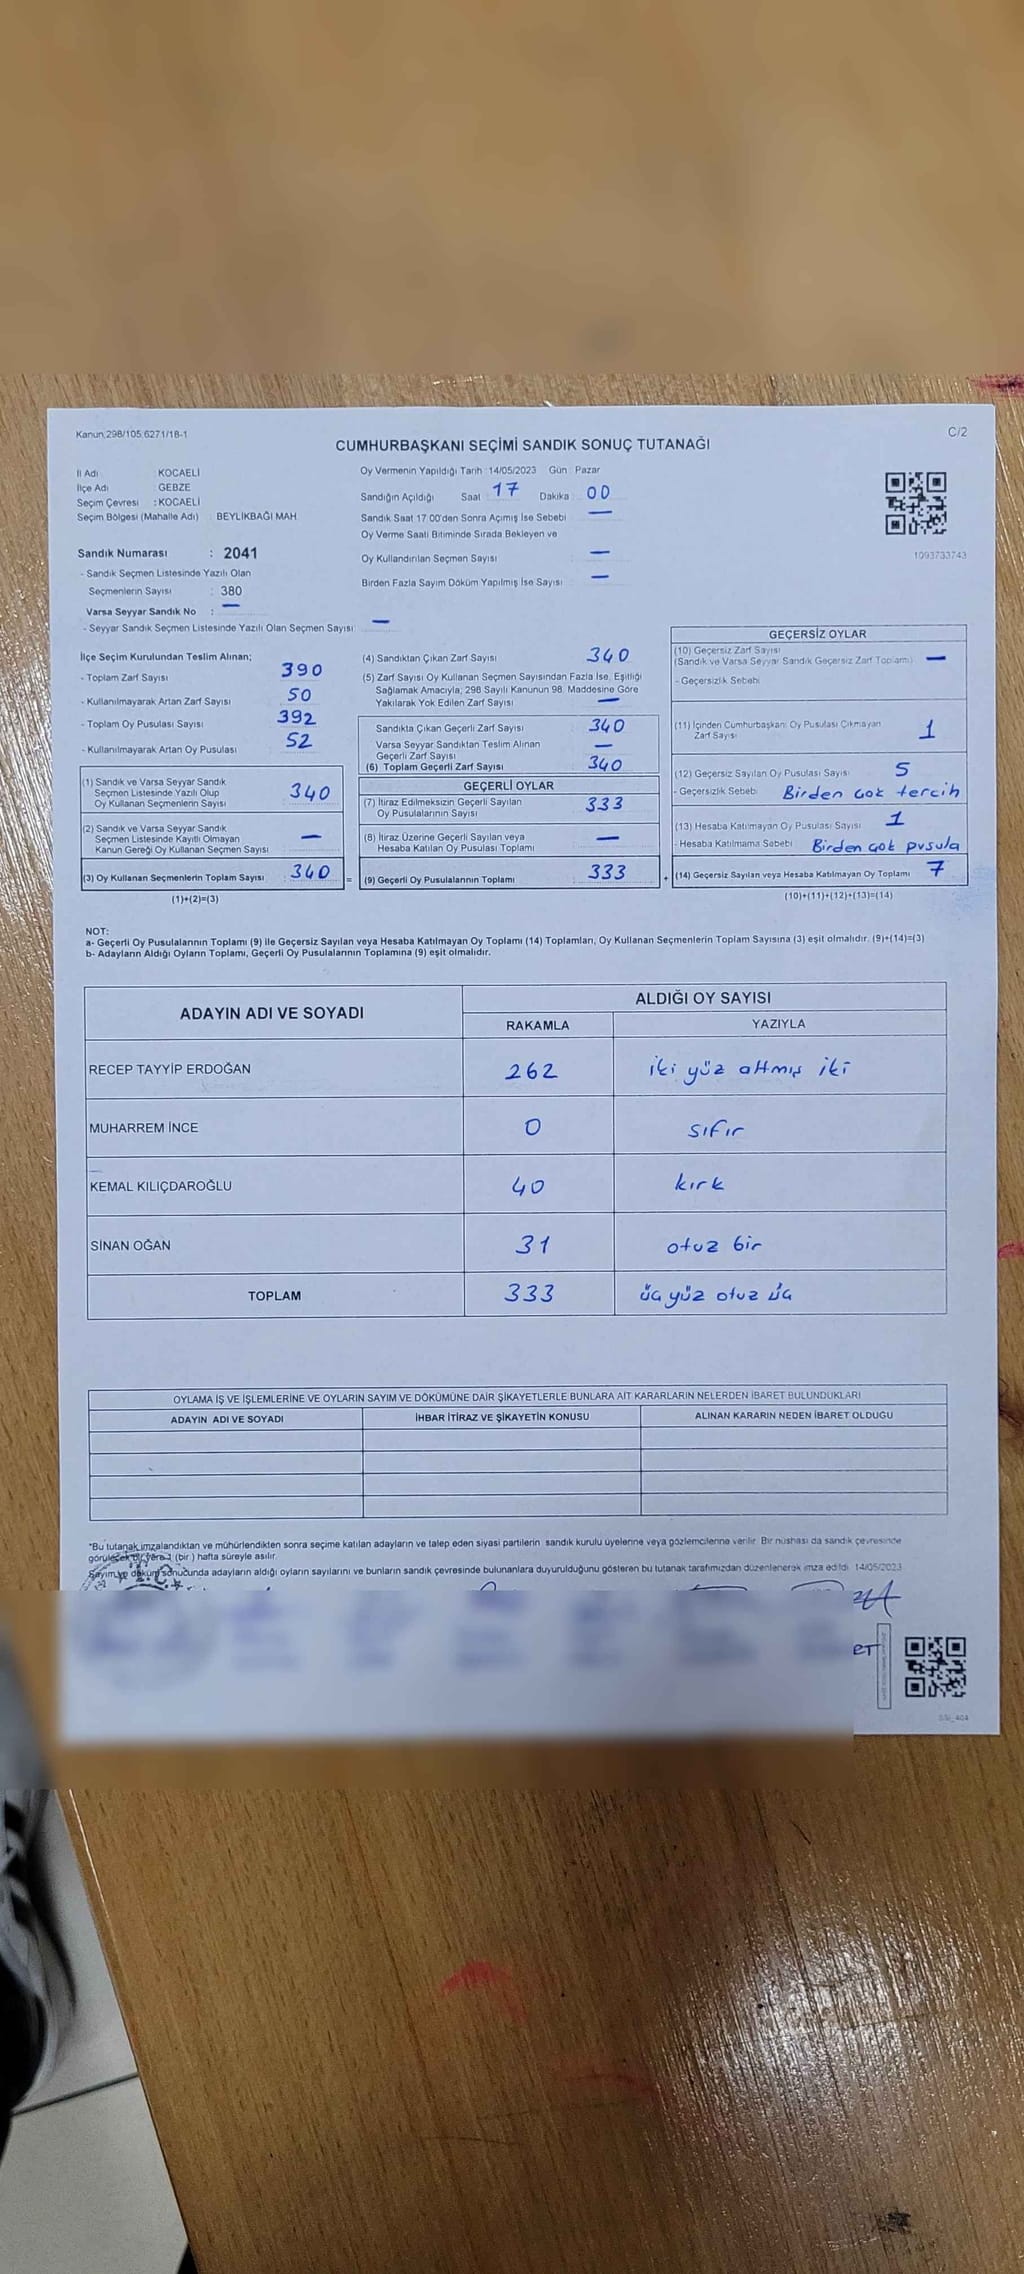 Kanun:298/105,6271/18-1
C/2
CUMHURBAŞKANI SEÇİMİ SANDIK SONUÇ TUTANAĞI
İl Adı : KOCAELİ
İlçe Adı : GEBZE
Seçim Çevresi : KOCAELİ
Seçim Bölgesi (Mahalle Adı) : BEYLİKBAĞI MAH.
Oy Vermenin Yapıldığı Tarih :14/05/2023 Gün : Pazar
Sandığın Açıldığı Saat 17 Dakika 00
Sandık Saat 17.00'den Sonra Açımış İse Sebebi —
Oy Verme Saati Bitiminde Sırada Bekleyen ve
Oy Kullandırılan Seçmen Sayısı : —
Birden Fazla Sayım Döküm Yapılmış İse Sayısı : —
1093733743
Sandık Numarası : 2041
- Sandık Seçmen Listesinde Yazılı Olan
Seçmenlerin Sayısı : 380
Varsa Seyyar Sandık No : —
- Seyyar Sandık Seçmen Listesinde Yazılı Olan Seçmen Sayısı: —
İlçe Seçim Kurulundan Teslim Alınan;
- Toplam Zarf Sayısı 390
- Kullanılmayarak Artan Zarf Sayısı 50
- Toplam Oy Pusulası Sayısı 392
- Kullanılmayarak Artan Oy Pusulası 52
(1) Sandık ve Varsa Seyyar Sandık
Seçmen Listesinde Yazılı Olup
Oy Kullanan Seçmenlerin Sayısı 340
(2) Sandık ve Varsa Seyyar Sandık
Seçmen Listesinde Kayıtlı Olmayan
Kanun Gereği Oy Kullanan Seçmen Sayısı —
(3) Oy Kullanan Seçmenlerin Toplam Sayısı : 340 =
(1)+(2)=(3)
(4) Sandıktan Çıkan Zarf Sayısı 340
(5) Zarf Sayısı Oy Kullanan Seçmen Sayısından Fazla İse, Eşitliği
Sağlamak Amacıyla, 298 Sayılı Kanunun 98. Maddesine Göre
Yakılarak Yok Edilen Zarf Sayısı —
Sandıkta Çıkan Geçerli Zarf Sayısı 340
Varsa Seyyar Sandıktan Teslim Alınan
Geçerli Zarf Sayısı —
(6) Toplam Geçerli Zarf Sayısı 340
GEÇERLİ OYLAR
(7) İtiraz Edilmeksizin Geçerli Sayılan
Oy Pusulalarının Sayısı 333
(8) İtiraz Üzerine Geçerli Sayılan veya
Hesaba Katılan Oy Pusulası Toplamı —
(9) Geçerli Oy Pusulalarının Toplamı 333 +
GEÇERSİZ OYLAR
(10) Geçersiz Zarf Sayısı
(Sandık ve Varsa Seyyar Sandık Geçersiz Zarf Toplamı) —
- Geçersizlik Sebebi
(11) İçinden Cumhurbaşkanı Oy Pusulası Çıkmayan
Zarf Sayısı 1
(12) Geçersiz Sayılan Oy Pusulası Sayısı 5
- Geçersizlik Sebebi Birden çok tercih
(13) Hesaba Katılmayan Oy Pusulası Sayısı 1
- Hesaba Katılmama Sebebi Birden çok pusula
(14) Geçersiz Sayılan veya Hesaba Katılmayan Oy Toplamı 7
(10)+(11)+(12)+(13)=(14)
NOT:
a- Geçerli Oy Pusulalarının Toplamı (9) ile Geçersiz Sayılan veya Hesaba Katılmayan Oy Toplamı (14) Toplamları, Oy Kullanan Seçmenlerin Toplam Sayısına (3) eşit olmalıdır. (9)+(14)=(3)
b- Adayların Aldığı Oyların Toplamı, Geçerli Oy Pusulalarının Toplamına (9) eşit olmalıdır.
ADAYIN ADI VE SOYADI ALDIĞI OY SAYISI
RAKAMLA YAZIYLA
RECEP TAYYİP ERDOĞAN 262 iki yüz altmış iki
MUHARREM İNCE 0 sıfır
KEMAL KILIÇDAROĞLU 40 kırk
SİNAN OĞAN 31 otuz bir
TOPLAM 333 üç yüz otuz üç
OYLAMA İŞ VE İŞLEMLERİNE VE OYLARIN SAYIM VE DÖKÜMÜNE DAİR ŞİKAYETLERLE BUNLARA AİT KARARLARIN NELERDEN İBARET BULUNDUKLARI
ADAYIN ADI VE SOYADI İHBAR İTİRAZ VE ŞİKAYETİN KONUSU ALINAN KARARIN NEDEN İBARET OLDUĞU
*Bu tutanak imzalandıktan ve mühürlendikten sonra seçime katılan adayların ve talep eden siyasi partilerin sandık kurulu üyelerine veya gözlemcilerine verilir. Bir nüshası da sandık çevresinde
görülecek bir yere 1 (bir ) hafta süreyle asılır.
Sayım ve döküm sonucunda adayların aldığı oyların sayılarını ve bunların sandık çevresinde bulunanlara duyurulduğunu gösteren bu tutanak tarafımızdan düzenlenerek imza edildi. 14/05/2023
T.C.
ET